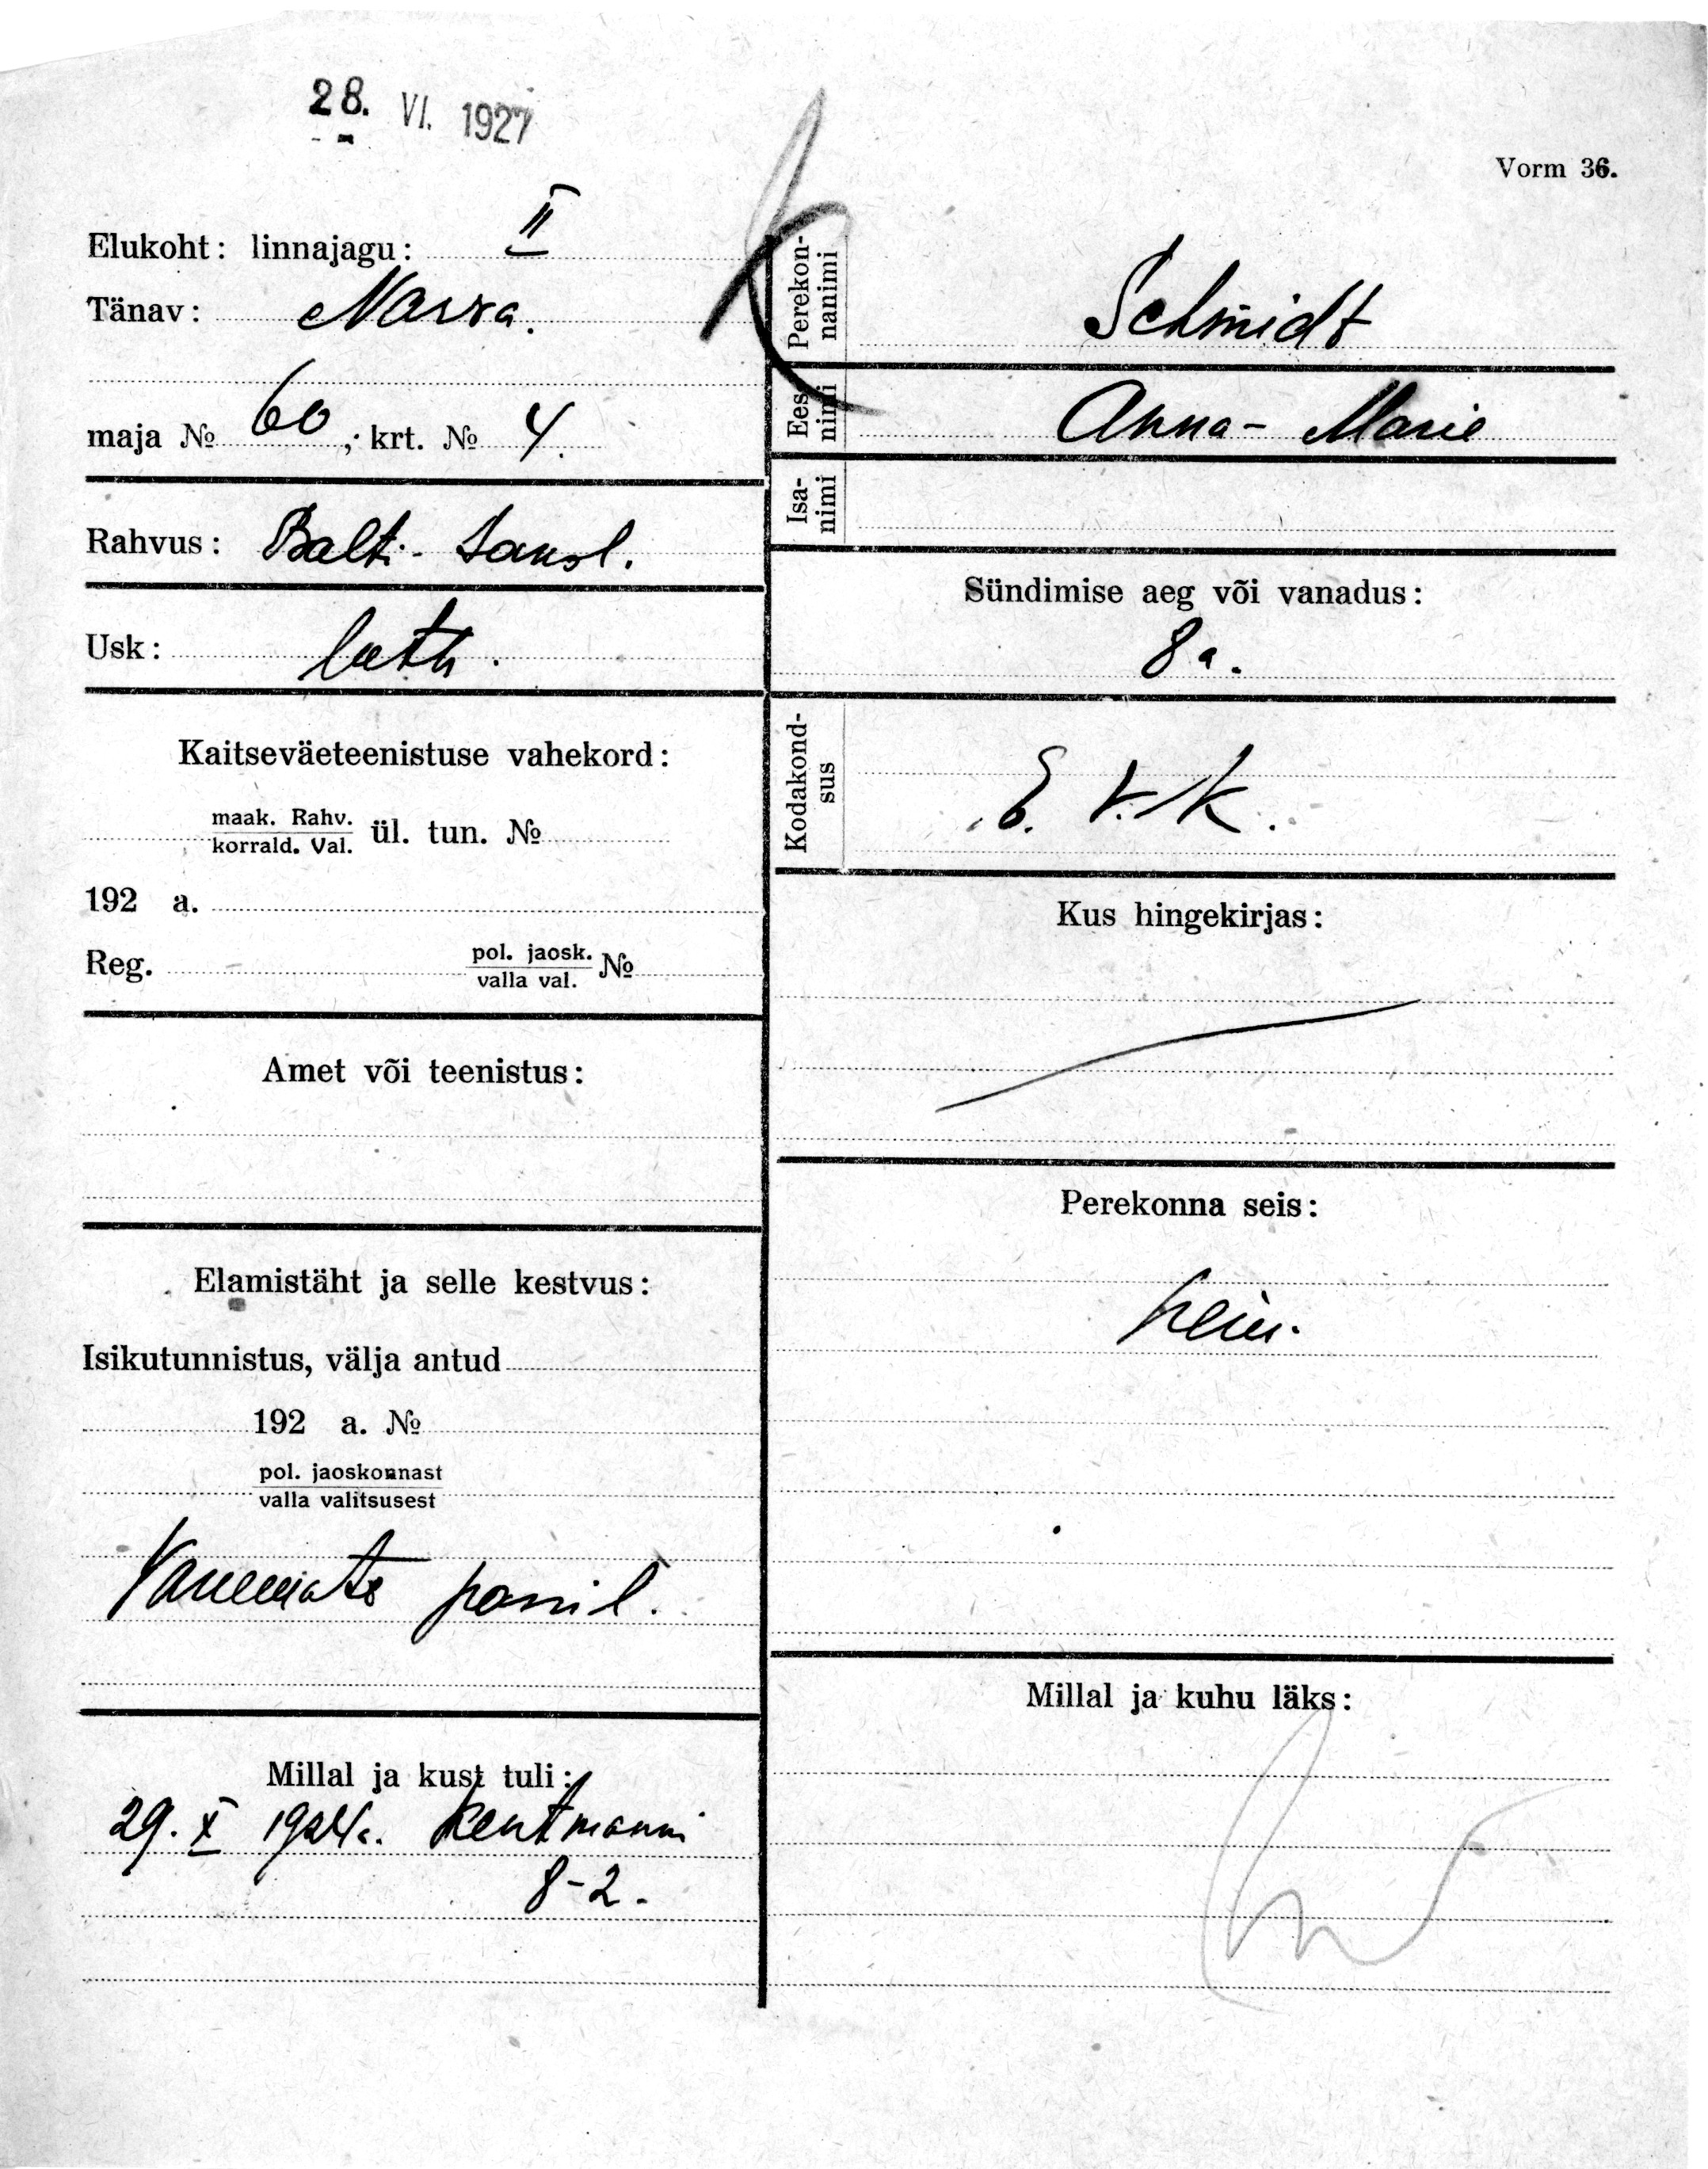 28. VI. 1927
Vorm 36.
Elukoht: linnajagu: II
Tänav: Narva.
maja № 60, krt. № 4.
Rahvus: Balti-saksl.
Usk: luth.
Kaitseväeteenistuse vahekord:
maak. Rahv.
korrald. Val. ül. tun. №
192 a.
Reg. pol. jaosk.
valla val. №
Amet või teenistus:
Elamistäht ja selle kestvus:
Isikutunnistus, välja antud
192 a. №
pol. jaoskonnast
valla valitsusest
Vanemate passil.
Millal ja kust tuli:
29. X 1924a. Kentmanni
8-2.
Perekon-
nanimi
Schmidt
Ees-
nimi
Anna-Marie
Isa-
nimi
Sündimise aeg või vanadus:
8 a.
Kodakond-
sus
E. V. K.
Kus hingekirjas:
Perekonna seis:
Millal ja kuhu läks: